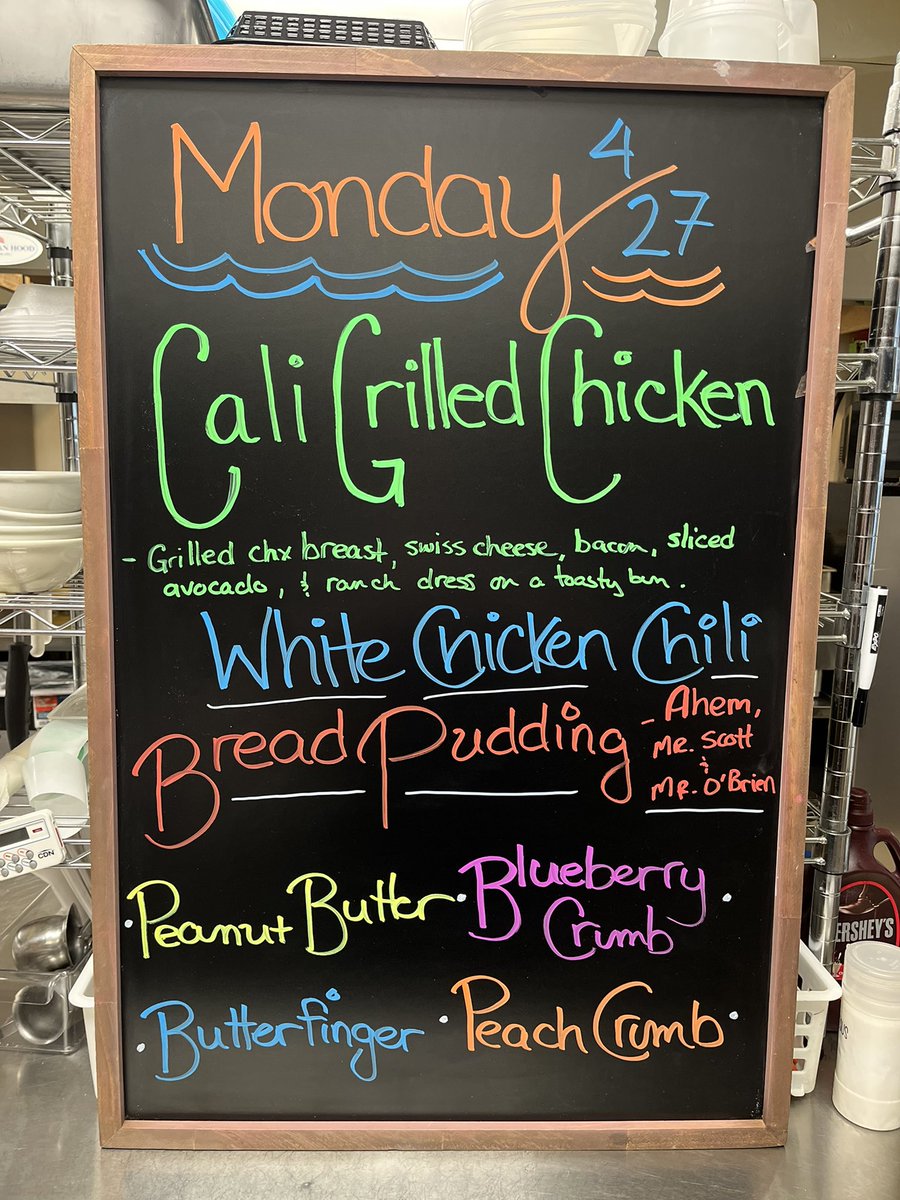 Monday 4/27
Cali Grilled Chicken
- Grilled chx breast, swiss cheese, bacon, sliced
avocado, & ranch dress on a toasty bun.
White Chicken Chili
Bread Pudding
- Ahem,
Mr. Scott
&
Mr. O'Brien
· Peanut Butter
· Blueberry ·
Crumb
· Butterfinger
· Peach Crumb ·
HERSHEY'S
CDN
expo